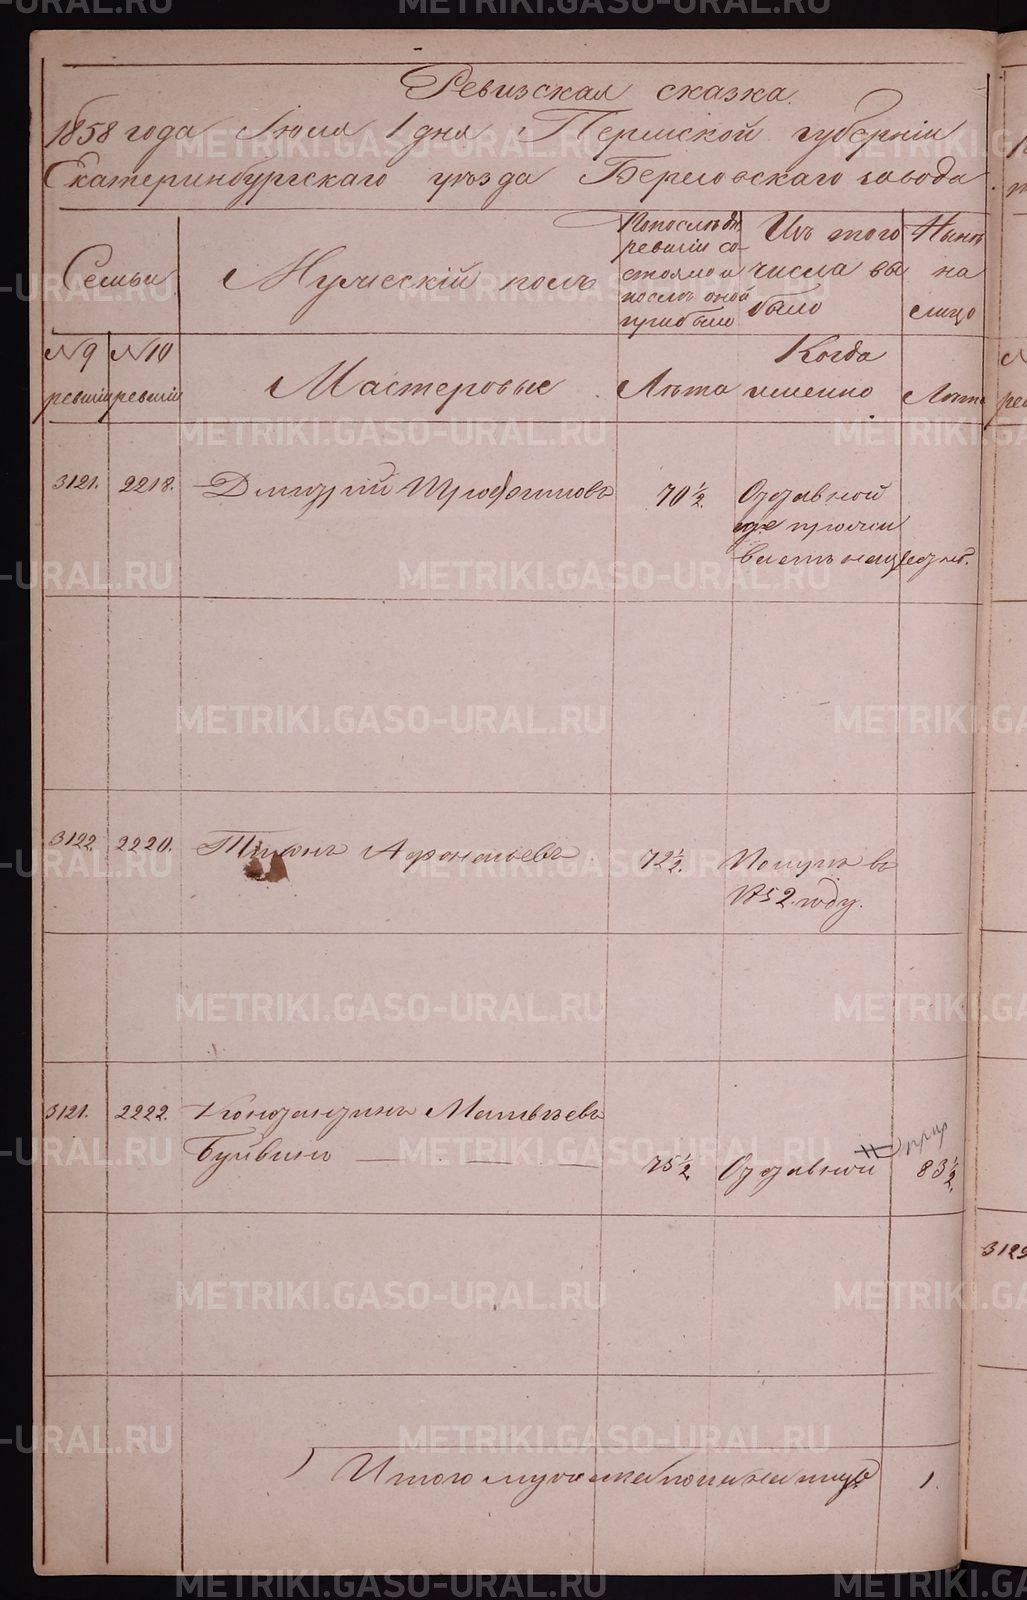 Ревизская сказка.
1858 года Іюля 1 дня Пермской губерніи
Екатеринбургскаго уѣзда Березовскаго завода
Семьи
Мужескій полъ
По послѣдн.
ревизіи со-
стояло и
послѣ оной
прибыло
Изъ того
числа вы
было
Нынѣ
на
лицо
№ 9
ревизіи
№ 10
ревизіи
Мастеровые
Лѣта
Когда
именно
Лѣта
3121. 2218. Дмитрій Трофимовъ 70½. Отставной
где прожи
ваетъ неизвестно.
3122 2220. Титъ Афонасьевъ 72½. Померъ въ
1852. году.
3121. 2222. Константинъ Матвѣевъ
Буйвинъ 75½ Отставной 83½.
Итого мужеска пола на лицо 1.
3123
METRIKI.GASO-URAL.RU